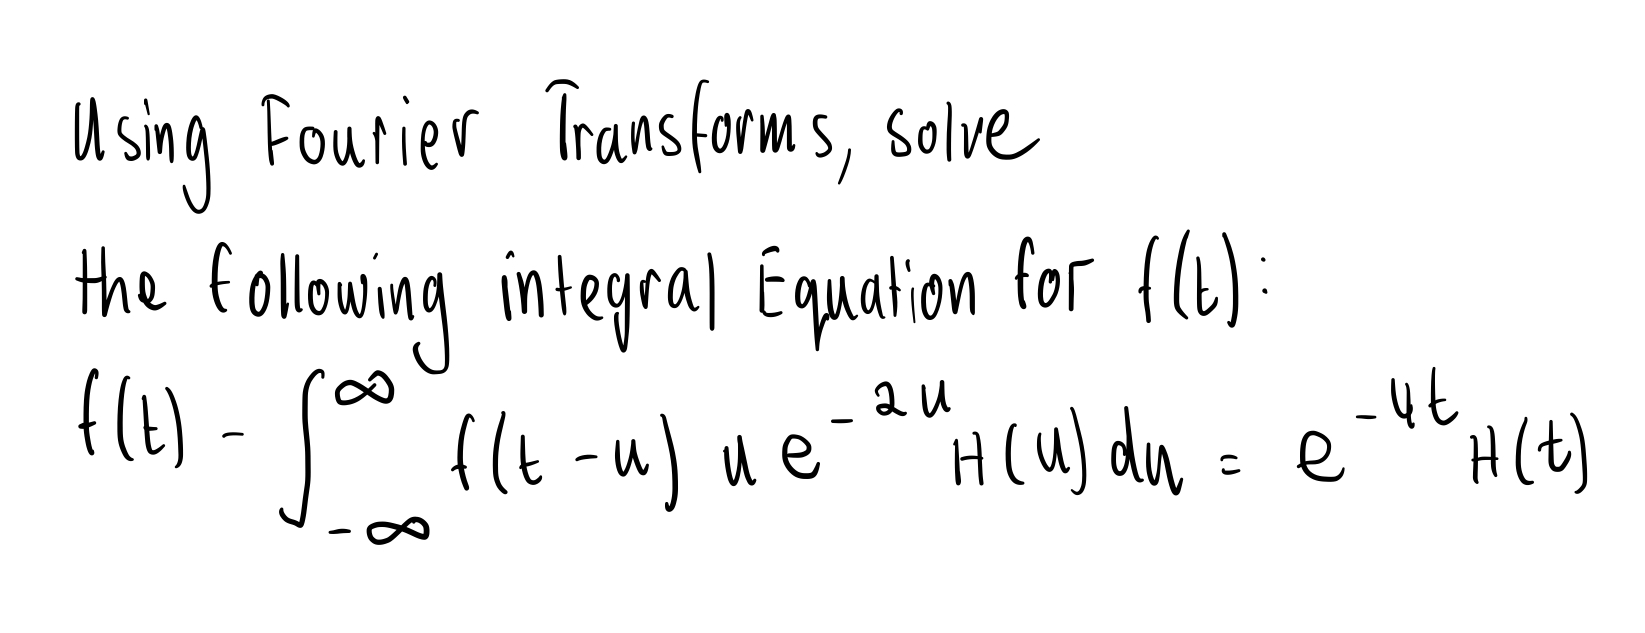 Using Fourier Transforms, solve
the following integral Equation for f(t):
f(t) - ∫_{-∞}^{∞} f(t-u) u e^{-2u} H(u) du = e^{-4t} H(t)